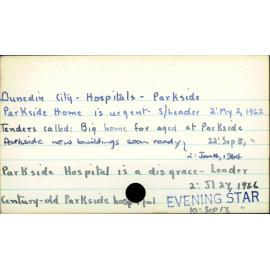 Dunedin City - Hospitals - Parkside
Parkside Home is urgent - S/header 2: My 2, 1962
Tenders called: Big home for aged at Parkside
Parkside new buildings soon ready, 22: Sep 8, "
2: Jan 16, 1964
Parkside Hospital is a disgrace - Leader
2: Jl 27, 1966
Century-old Parkside hospital EVENING STAR
10: Sep 17, "